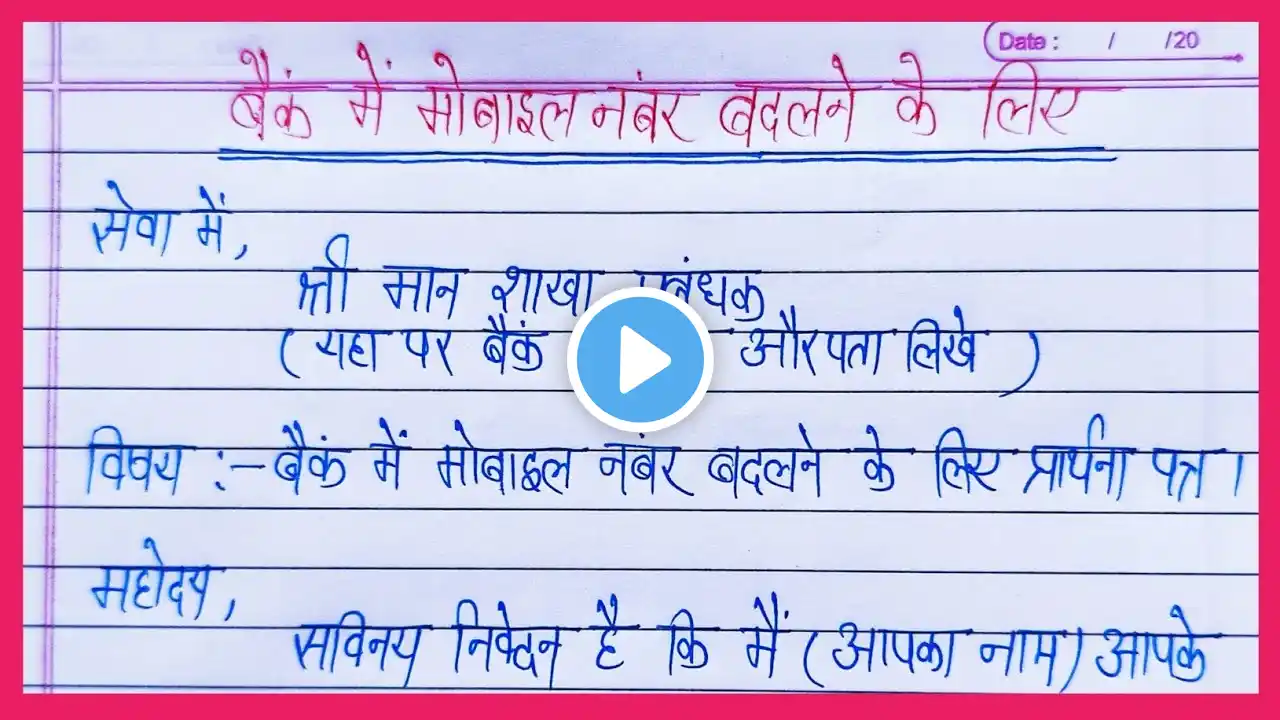 Date : / /20
बैंक में मोबाइल नंबर बदलने के लिए
सेवा में,
श्री मान शाखा
(यहा पर बैंक औरपता लिखे )
विषय :- बैंक में मोबाइल नंबर बदलने के लिए प्रार्थना पत्र ।
महोदय,
सविनय निवेदन है कि मैं (आपका नाम) आपके